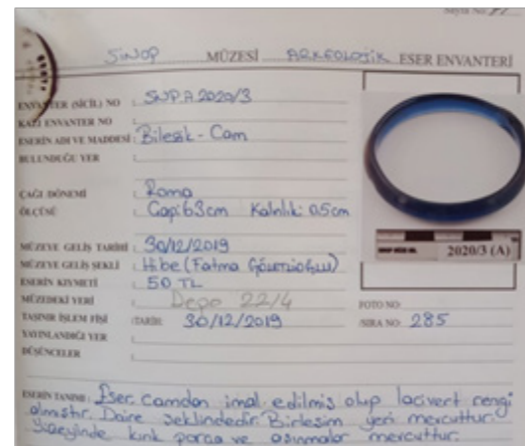 SİNOP MÜZESİ ARKEOLOJİK ESER ENVANTERİ
ENVANTER (SİCİL) NO : SNP.A 2020/3
KAZI ENVANTER NO :
ESERİN ADI VE MADDESİ : Bilezik - Cam
BULUNDUĞU YER :
ÇAĞI DÖNEMİ : Roma
ÖLÇÜSÜ : Çapı: 6.3cm Kalınlık: 0.5cm
MÜZEYE GELİŞ TARİHİ : 30/12/2019
MÜZEYE GELİŞ ŞEKLİ : Hibe (Fatma
ESERİN KIYMETİ : 50 TL
MÜZEDEKİ YERİ : Depo 22/4
TAŞINIR İŞLEM FİŞİ :TARİH: 30/12/2019
YAYINLANDIĞI YER :
DÜŞÜNCELER :
2020/3 (A)
FOTO NO:
:SIRA NO: 285
ESERİN TANIMI: Eser, camdan imal edilmiş olup lacivert rengi
almıştır. Daire şeklindedir. Birleşim yeri mevcuttur.
Yüzeyinde kırık parça ve aşınmalar mevcuttur.